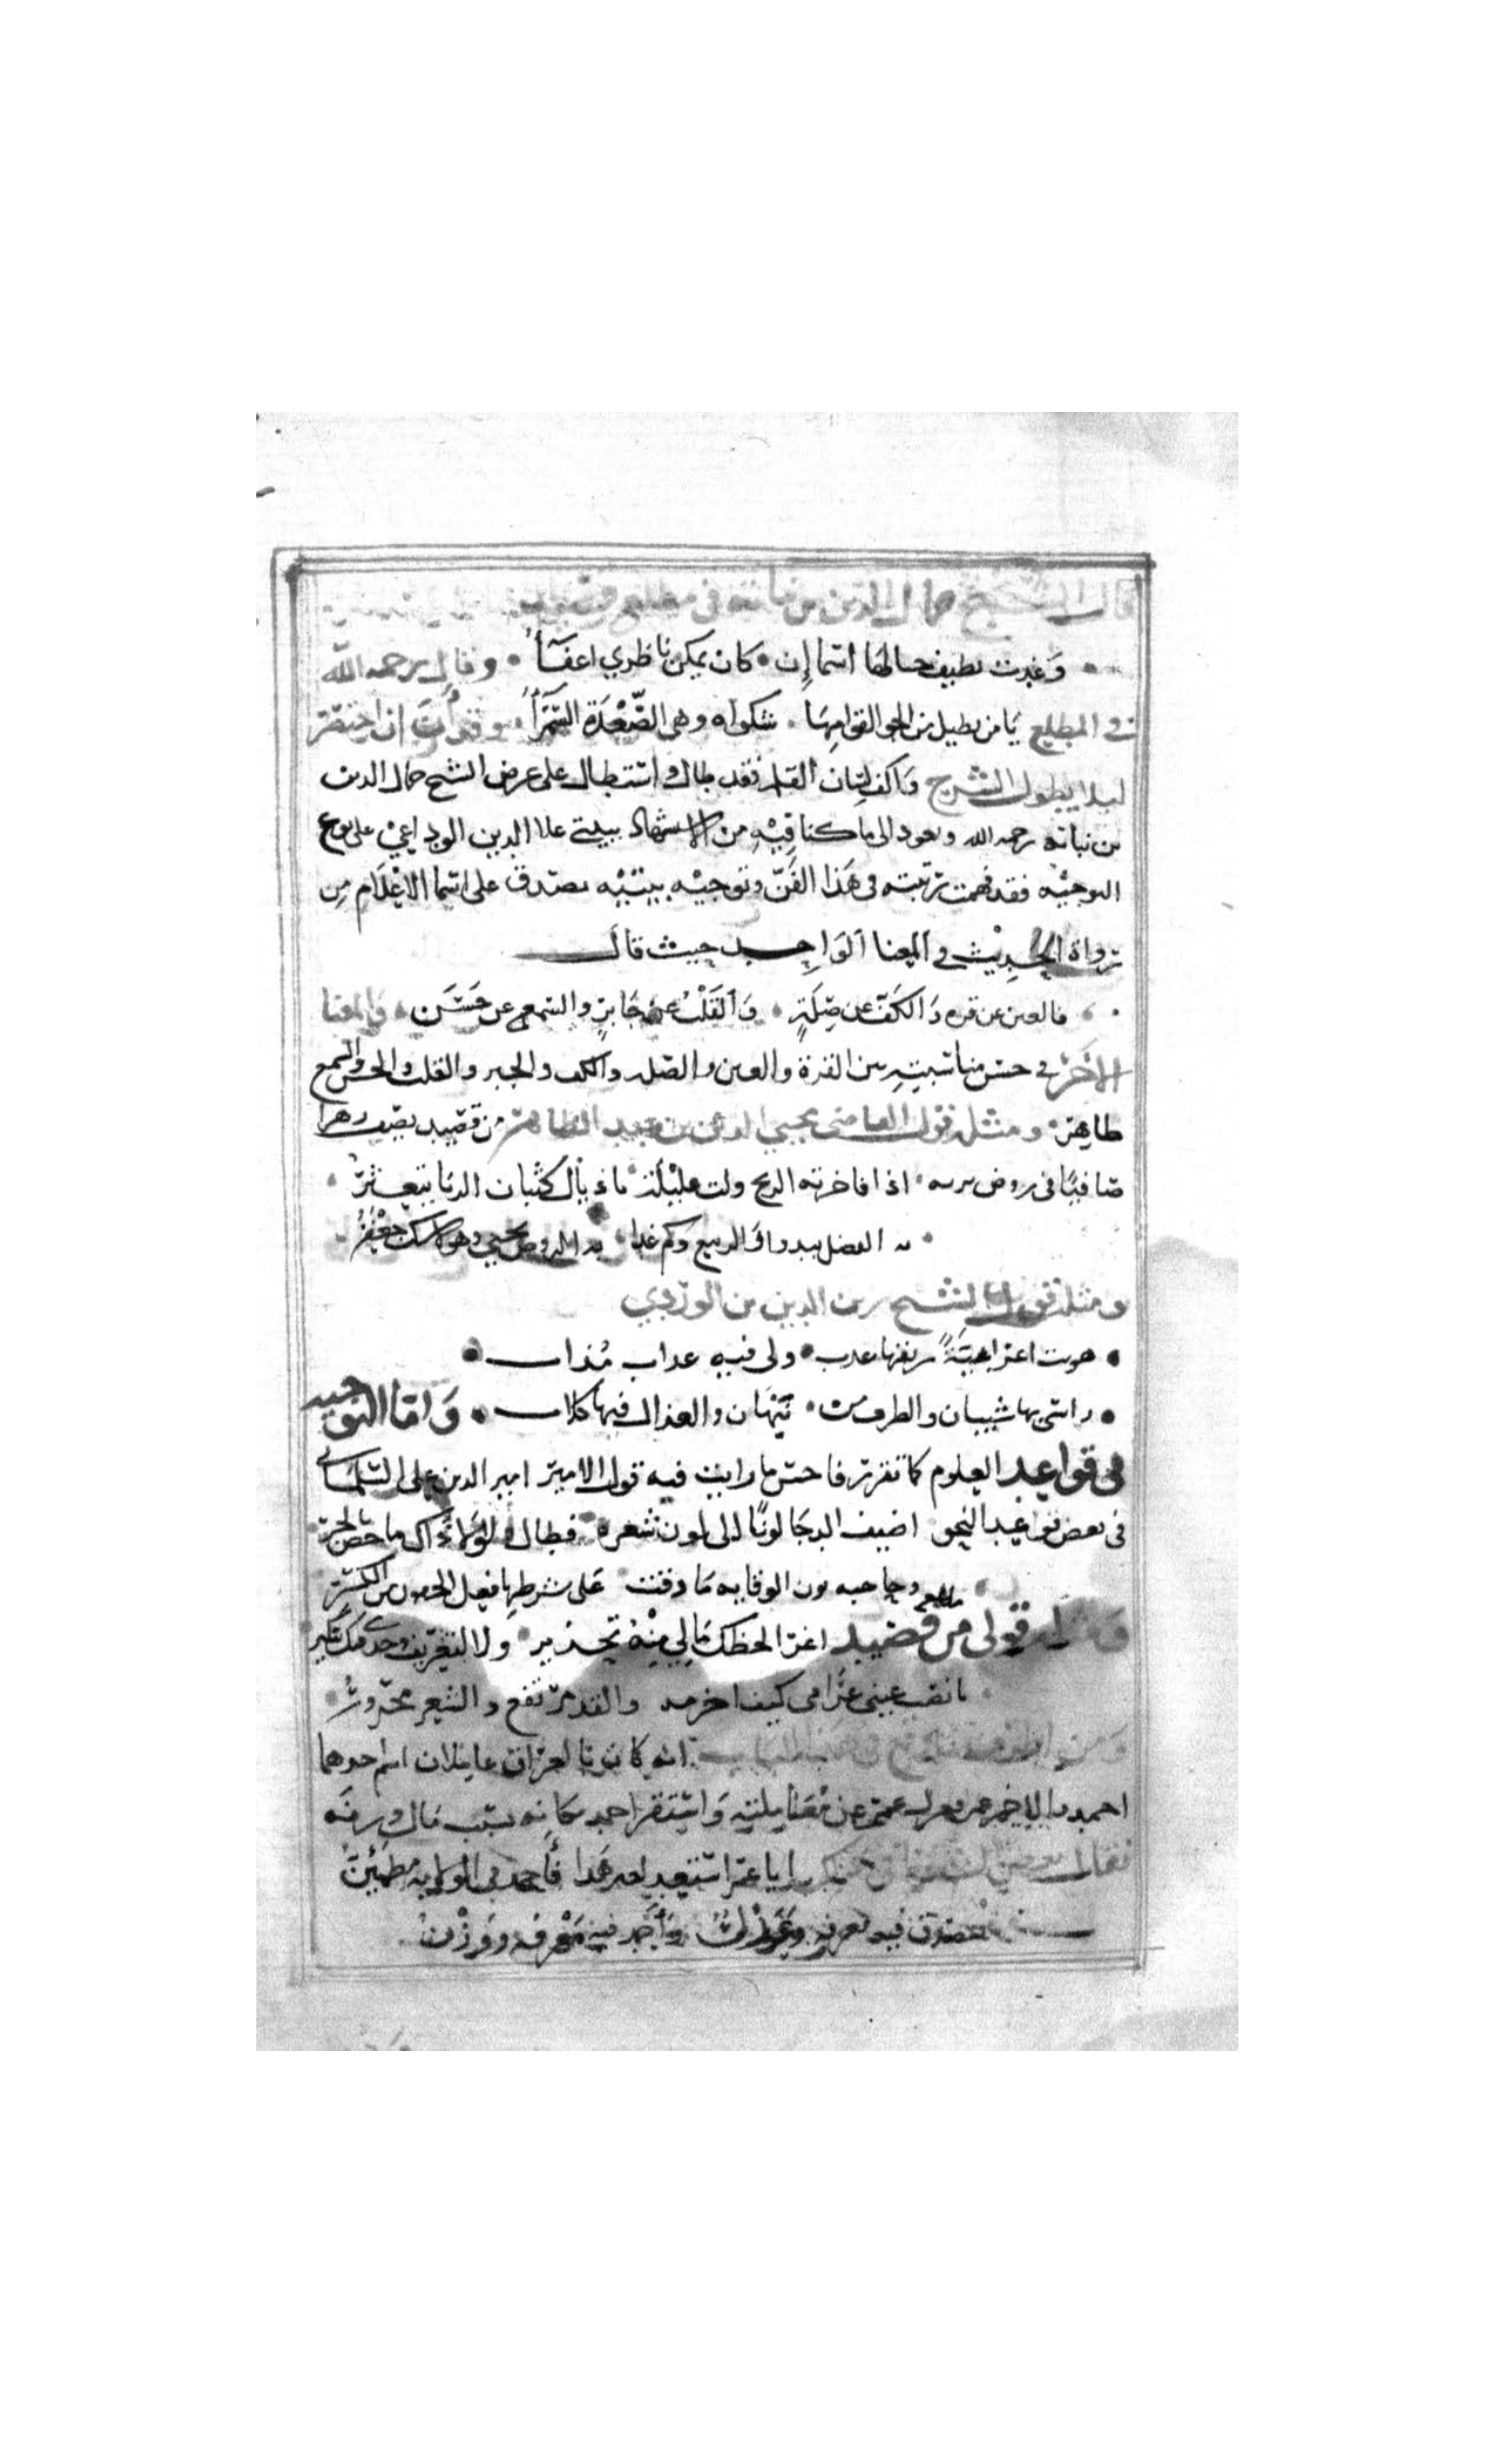 قال الشيخ جمال الدين بن نباته في مطلع
وغدت بطيف خيالها اسما إن كان يمكن ناظري اعفاً وقال رحمه الله
في المطلع يا من يطيل من الجوا لقوامها شكواه وهي الصَّعْدَة السَّمرَا ان اختصر
ليلا يطول الشرح واكف لسان القلم فقد طال واستطال على عرض الشيخ جمال الدين
بن نباته رحمه الله ونعود الى ما كنا فيه من الاستشهاد ببيتي علا الدين الوداعي على نوع
التوجيه فقد فهمت رتبته في هذا الفن وتوجيه بيتيه يصدق على اسما الاعلام من
رواة الحديث في المعنا الواحد حيث قال
فالعين عن قره والكف عن صِلَةٍ والقلب عن جابرٍ والسمع عن حسن والمعنا
الاخر في حسن مناسبته بين القرة والعين والصله والكف والجبر والقلب والحسن والسمع
ظاهر ومثله قول القاضي محيي الدين بن عبد الظاهر من قصيد يصف نهرا
صافيا في روض اذا فاخرته الريح ولت عليلة باذيال كثبان الربا تتعثر
به الفضل يبدو والربيع وكم غدا به الروض يحيي وهو لاشك جعفر
ومثله قول الشيخ زين الدين بن الوردي
هويت اعرابية ريقها عذب ولي فيه عذاب مذاب
راسي بها شيبان والطرف من نبهان والعذال فيها كلاب وَاما التوجيه
في قواعد العلوم كما تقرر فاحسن ما رايت فيه قول الامير امير الدين علي السليماني
في بعض قواعد النحو اضيف الدجا لونًا الى لون شعره فطال ولولا ذاك ما خص بالجر
وحاجبه نون الوقايه ما وقت على شرطها فعل الجفون من الكسر
ومثله قولي من قصيد اغرا لحظك مالي منه تحذير ولا لتعريف وجدي فيك تنكير
يا نصب عيني غرامي كيف والقد مرتفع والشعر مجرور
انه كان بالعراق عاملان اسم احدهما
احمد والاخر عمر فعزل عمر عن عمله واستقر احمد مكانه بسبب مال وزنه
فقال بعض ايا عمر استعد لغير هذا فأحمد في الولايه مطمئن
تصدق فيه معرفه وعدل واحمد فيه معرفه ووزن